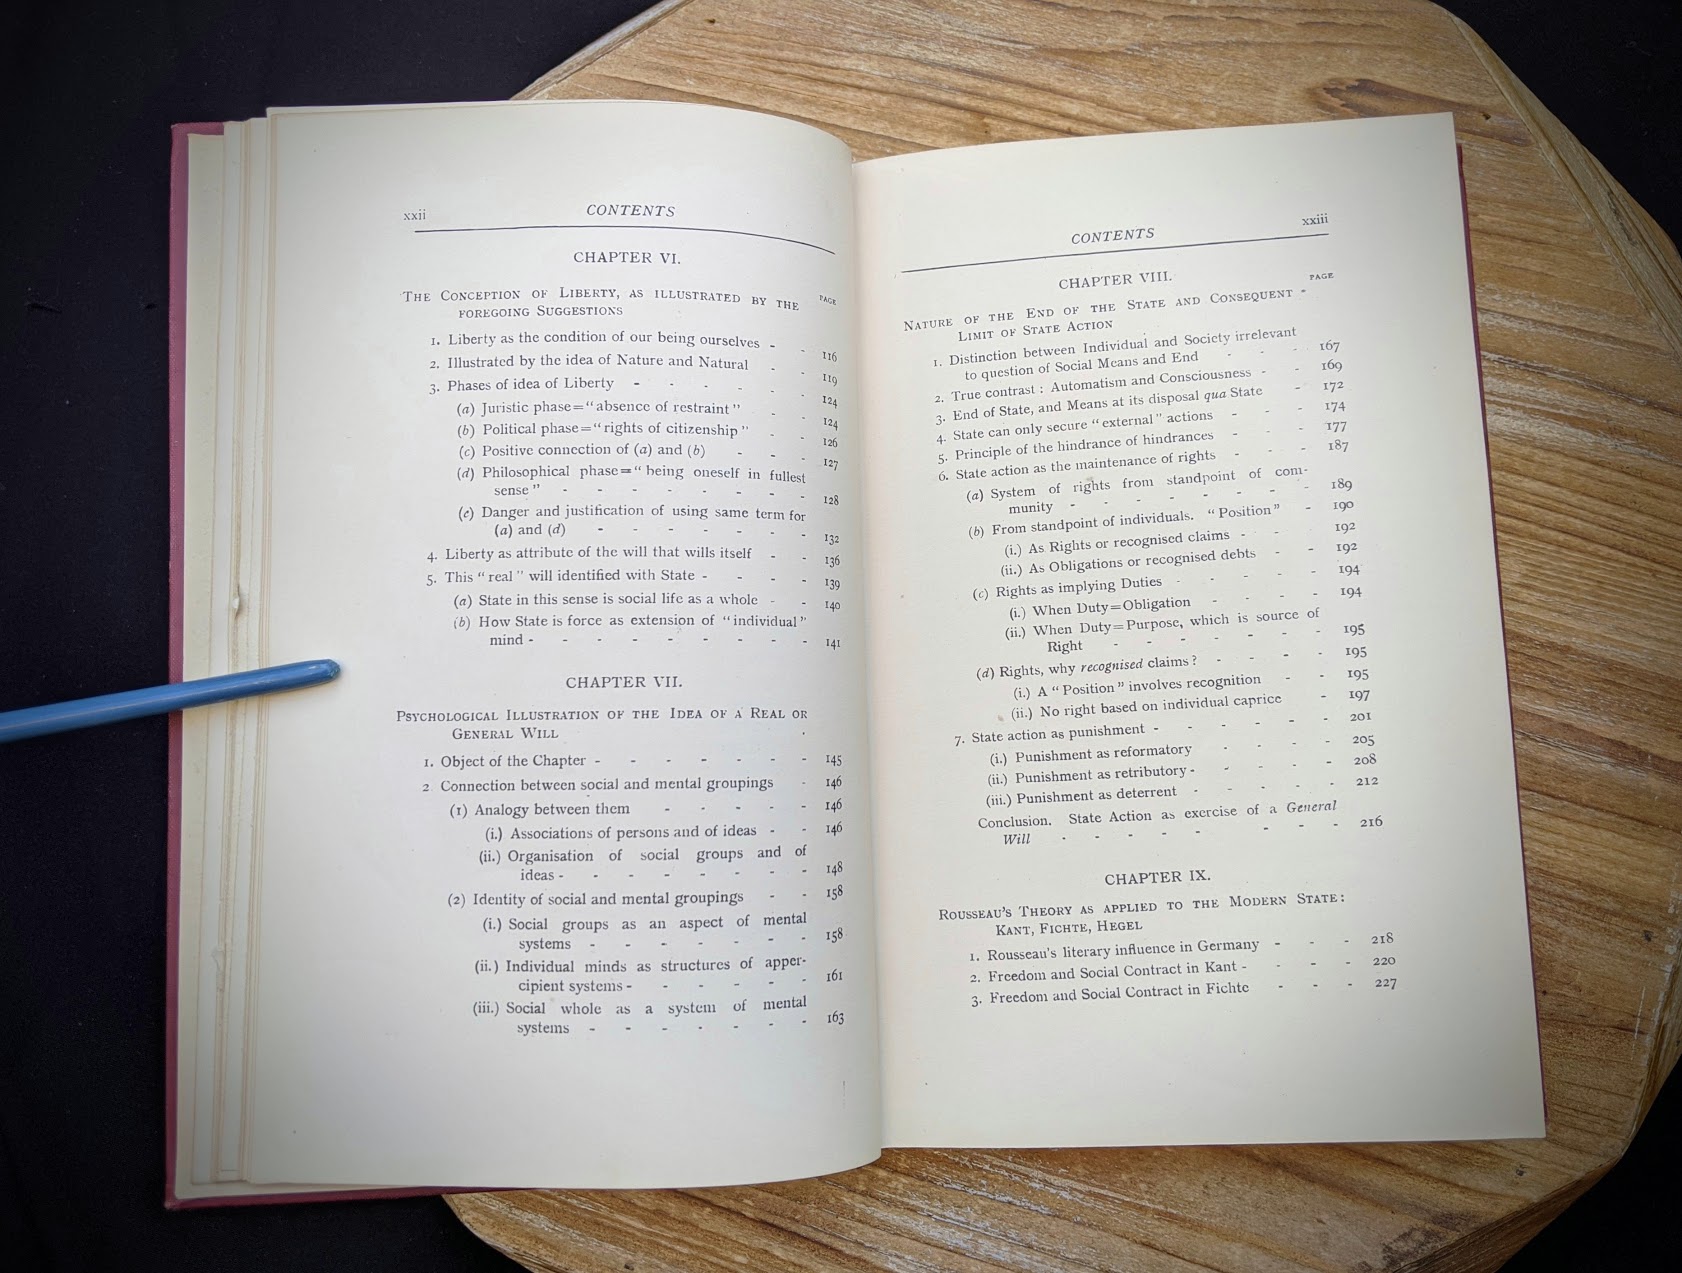 xxii CONTENTS
CHAPTER VI.
PAGE
THE CONCEPTION OF LIBERTY, AS ILLUSTRATED BY THE
FOREGOING SUGGESTIONS
1. Liberty as the condition of our being ourselves - - 116
2. Illustrated by the idea of Nature and Natural - - 119
3. Phases of idea of Liberty - - - - - - 124
(a) Juristic phase="absence of restraint" - - 124
(b) Political phase="rights of citizenship" - - 126
(c) Positive connection of (a) and (b) - - - 127
(d) Philosophical phase="being oneself in fullest
sense" - - - - - - - - 128
(e) Danger and justification of using same term for
(a) and (d) - - - - - - 132
4. Liberty as attribute of the will that wills itself - - 136
5. This "real" will identified with State - - - - 139
(a) State in this sense is social life as a whole - - 140
(b) How State is force as extension of "individual"
mind - - - - - - - - - 141
CHAPTER VII.
PSYCHOLOGICAL ILLUSTRATION OF THE IDEA OF A REAL OR
GENERAL WILL
1. Object of the Chapter - - - - - - - 145
2 Connection between social and mental groupings - 146
(1) Analogy between them - - - - - 146
(i.) Associations of persons and of ideas - - 146
(ii.) Organisation of social groups and of
ideas - - - - - - - - 148
(2) Identity of social and mental groupings - - 158
(i.) Social groups as an aspect of mental
systems - - - - - - - 158
(ii.) Individual minds as structures of apper-
cipient systems - - - - - - 161
(iii.) Social whole as a system of mental
systems - - - - - - - 163
CONTENTS xxiii
CHAPTER VIII.
PAGE
NATURE OF THE END OF THE STATE AND CONSEQUENT
LIMIT OF STATE ACTION
1. Distinction between Individual and Society irrelevant
to question of Social Means and End - - - 167
2. True contrast : Automatism and Consciousness - - 169
3. End of State, and Means at its disposal qua State - 172
4. State can only secure "external" actions - - - 174
5. Principle of the hindrance of hindrances - - - 177
6. State action as the maintenance of rights - - - 187
(a) System of rights from standpoint of com-
munity - - - - - - - 189
(b) From standpoint of individuals. "Position" - 190
(i.) As Rights or recognised claims - - - 192
(ii.) As Obligations or recognised debts - - 192
(c) Rights as implying Duties - - - - - 194
(i.) When Duty=Obligation - - - - 194
(ii.) When Duty=Purpose, which is source of
Right - - - - - - - 195
(d) Rights, why recognised claims? - - - - 195
(i.) A "Position" involves recognition - - 195
(ii.) No right based on individual caprice - 197
7. State action as punishment - - - - - - 201
(i.) Punishment as reformatory - - - - 205
(ii.) Punishment as retributory - - - - - 208
(iii.) Punishment as deterrent - - - - - 212
Conclusion. State Action as exercise of a General
Will - - - - - - - - 216
CHAPTER IX.
ROUSSEAU'S THEORY AS APPLIED TO THE MODERN STATE:
KANT, FICHTE, HEGEL
1. Rousseau's literary influence in Germany - - - 218
2. Freedom and Social Contract in Kant - - - - 220
3. Freedom and Social Contract in Fichte - - - 227